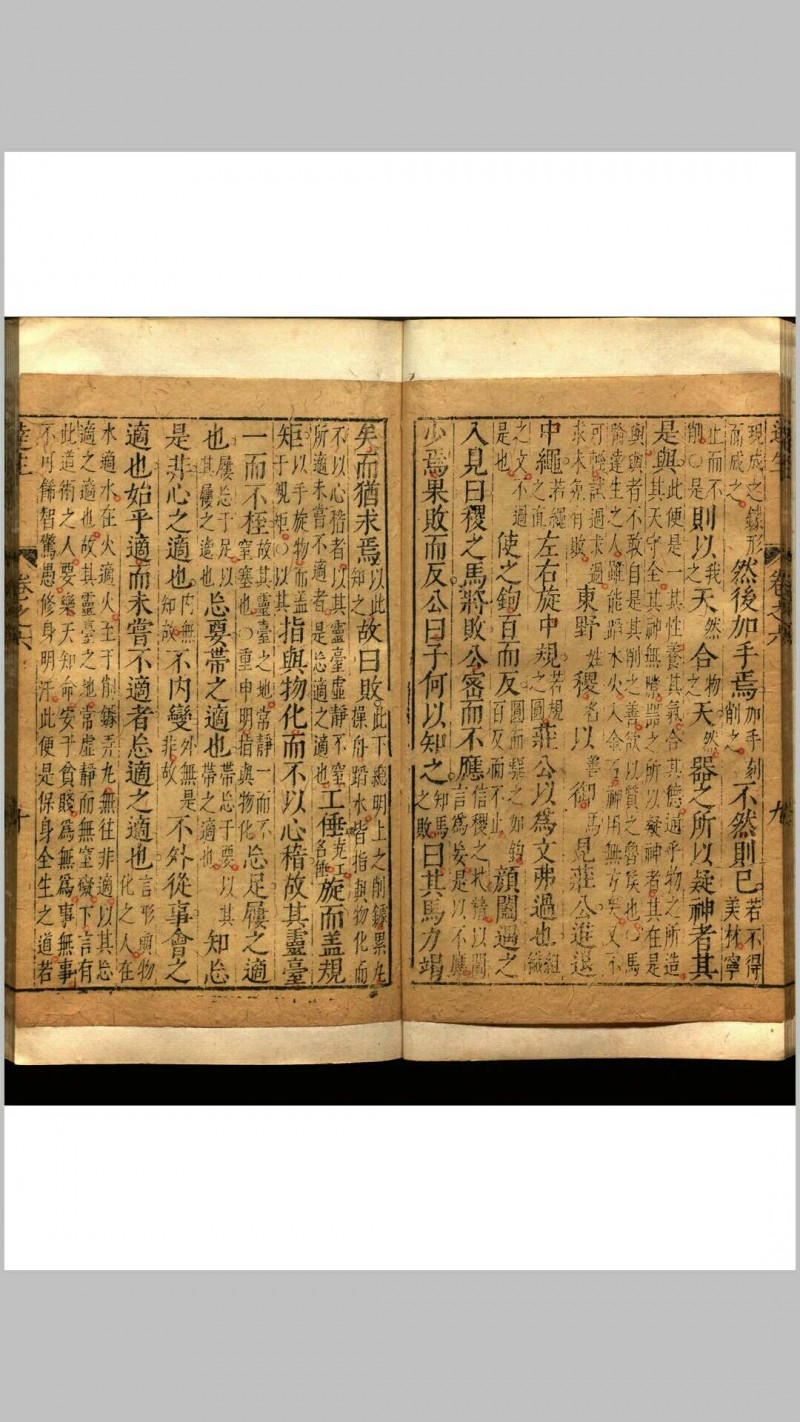 達生 卷之六 九
現成之鐻形而成之然後加手焉加手刻削之不然則已若不得美林寧
止而不削○是則以我之天然合之物天然器之所以疑神者其
是與此便是一其性養其氣合其德通乎物之所造其天守全其神無隙器之所以凝神者其在是
與與者不敢自是其削之善欲以質之魯侯也○馬喻達生之人雖能蹈水火入金石神用無方矣又不
可輕試過求過求未免有敗東野姓稷名以善御馬見莊公進退
中繩若繩之直左右旋中規若規之圓莊公以為文弗過也組織
之文不過是也使之鉤百而反圓而驅之如鉤百反而不止顏闔遇之
入見曰稷之馬將敗公密而不應信稷之技猜以闔言為妄是以不應
少焉果敗而反公曰子何以知之知馬之敗曰其馬力竭
矣而猶求焉以此知之故曰敗此下總明上之削鐻累丸操舟蹈水皆指與物化而
不以心稽者以其靈臺虛靜不窒所適未嘗不適者是忘適之適也工倕堯工名倕旋而盖規
矩以手旋物而盖于規矩○以其指與物化而不以心稽故其靈臺
一而不桎故其靈臺之地常靜一而不窒塞也○重申明指與物化忘足屨之適
也屨忘于足以其屨之適也忘要帶之適也帶忘于要以其帶之適也知忘
是非心之適也內無知故不內變外無是非故不外從事會之
適也始乎適而未嘗不適者忘適之適也言形與物化之人在
水適水在火適火至于削鐻弄丸無往非適以其忘適之適也故其靈臺之地常虛靜而無窒礙下言有
此道術之人要樂天知命安于貧賤為無為事無事不可餙智驚愚修身明汙此便是保身全生之道若
達生 卷之六 十